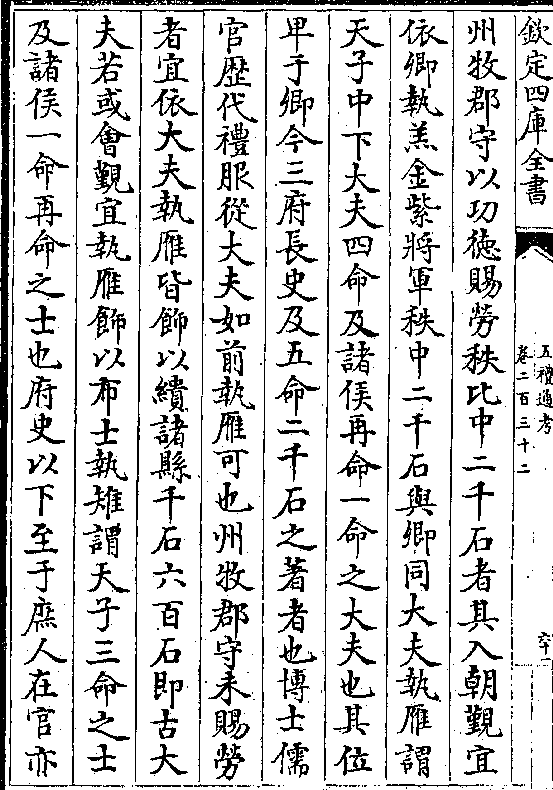 欽定四庫全書
五禮通考
卷二百三十二
六十一
州牧郡守以功德賜勞秩比中二千石者其入朝覲宜
依卿執羔金紫將軍秩中二千石與卿同大夫執雁謂
天子中下大夫四命及諸侯再命一命之大夫也其位
卑于卿今三府長史及五命二千石之著者也博士儒
官歴代禮服從大夫如前執雁可也州牧郡守未賜勞
者宜依大夫執雁皆飾以繢諸縣千石六百石即古大
夫若或會覲宜執雁飾以布士執雉謂天子三命之士
及諸侯一命再命之士也府史以下至于庶人在官亦